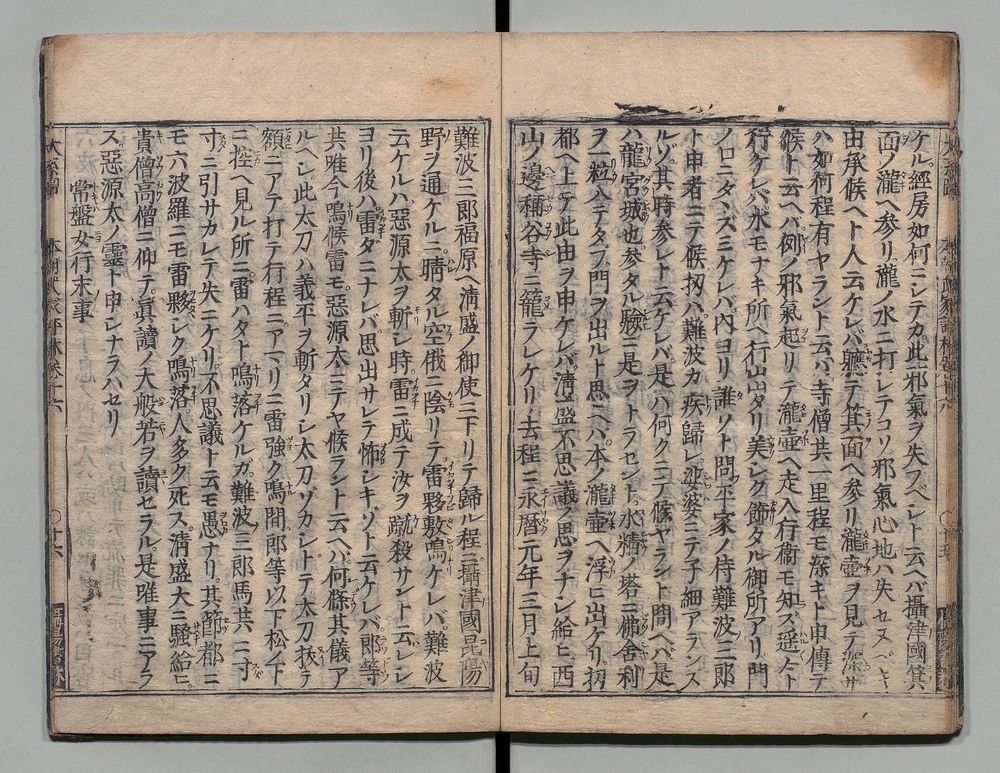 ケル。經房如何ニシテカ。此邪氣ヲ失フベシト云ヘバ攝津國箕
面ノ瀧ヘ參リ。瀧ノ水ニ打レテコソ邪氣心地ハ失セヌベシト
由承候ヘト人云ケレバ。軈テ箕面ヘ參リ瀧壺ヲ見テ深サ
ハ如何程有ヤラント云バ。寺僧共一里程モ深キト申傳テ
候ト云ヘバ。例ノ邪氣起リテ瀧壺ヘ走入。行衞モ知ズ遥々ト
行ケレバ水モナキ所ヘ行出タリ。美シク飾タル御所アリ。門
ノ口ニタヽズミケレバ内ヨリ誰ソト問。平家ノ侍難波三郎
ト申者ニテ候。扨ハ難波カ疾歸レ。娑婆ニテ子細アランズ
ルゾ。其時參レト云ケレバ。是ハ何クニテ候ヤラント問ヘバ是
ハ龍宮城也。參タル驗ニ是ヲトラセントテ。水精ノ塔ニ佛舍利
ヲ一粒入テタブ。門ヲ出ルト思ヘバ。本ノ瀧壺ヘ浮ヒ出ケリ。扨
都ヘ上テ此由ヲ申ケレバ。淸盛不思議ノ思ヲナシ給ヒ西
山ノ邊稱谷寺ニ籠ラレケリ。去程ニ永曆元年三月上旬
難波三郎福原ヘ淸盛ノ御使ニ下リテ歸ル程ニ。攝津國昆陽
野ヲ通ケルニ。晴タル空俄ニ陰リテ。雷夥敷鳴ケレバ。難波
云ケルハ。惡源太ヲ斬シ時。雷ニ成テ汝ヲ蹴殺サント云シ
ヨリ後ハ。雷ダニナレバ思出サレテ怖シキゾト云ケレバ。郎等
共唯今鳴候雷モ。惡源太ニテヤ候ラント云ヘバ。何條其儀ア
ルヘシ。此太刀ハ義平ヲ斬タリシ太刀ゾカシトテ太刀拔テ
額ニアテ打テ行程ニ。アマリニ雷強ク鳴間。郎等以下松ノ下
ニ控ヘ見ル所ニ。雷ハタト鳴落ケルガ。難波三郎馬共ニ寸
寸ニ引サカレテ失ニケリ。不思議ト云モ愚ナリ。其節都ニ
モ六波羅ニモ雷夥シク鳴落。人多ク死ス。淸盛大ニ騷給ヒ。
貴僧高僧ニ仰テ。眞讀ノ大般若ヲ讀セラル。是唯事ニアラ
ス。惡源太ノ靈ト申シナラハセリ
常盤女行末事
十六